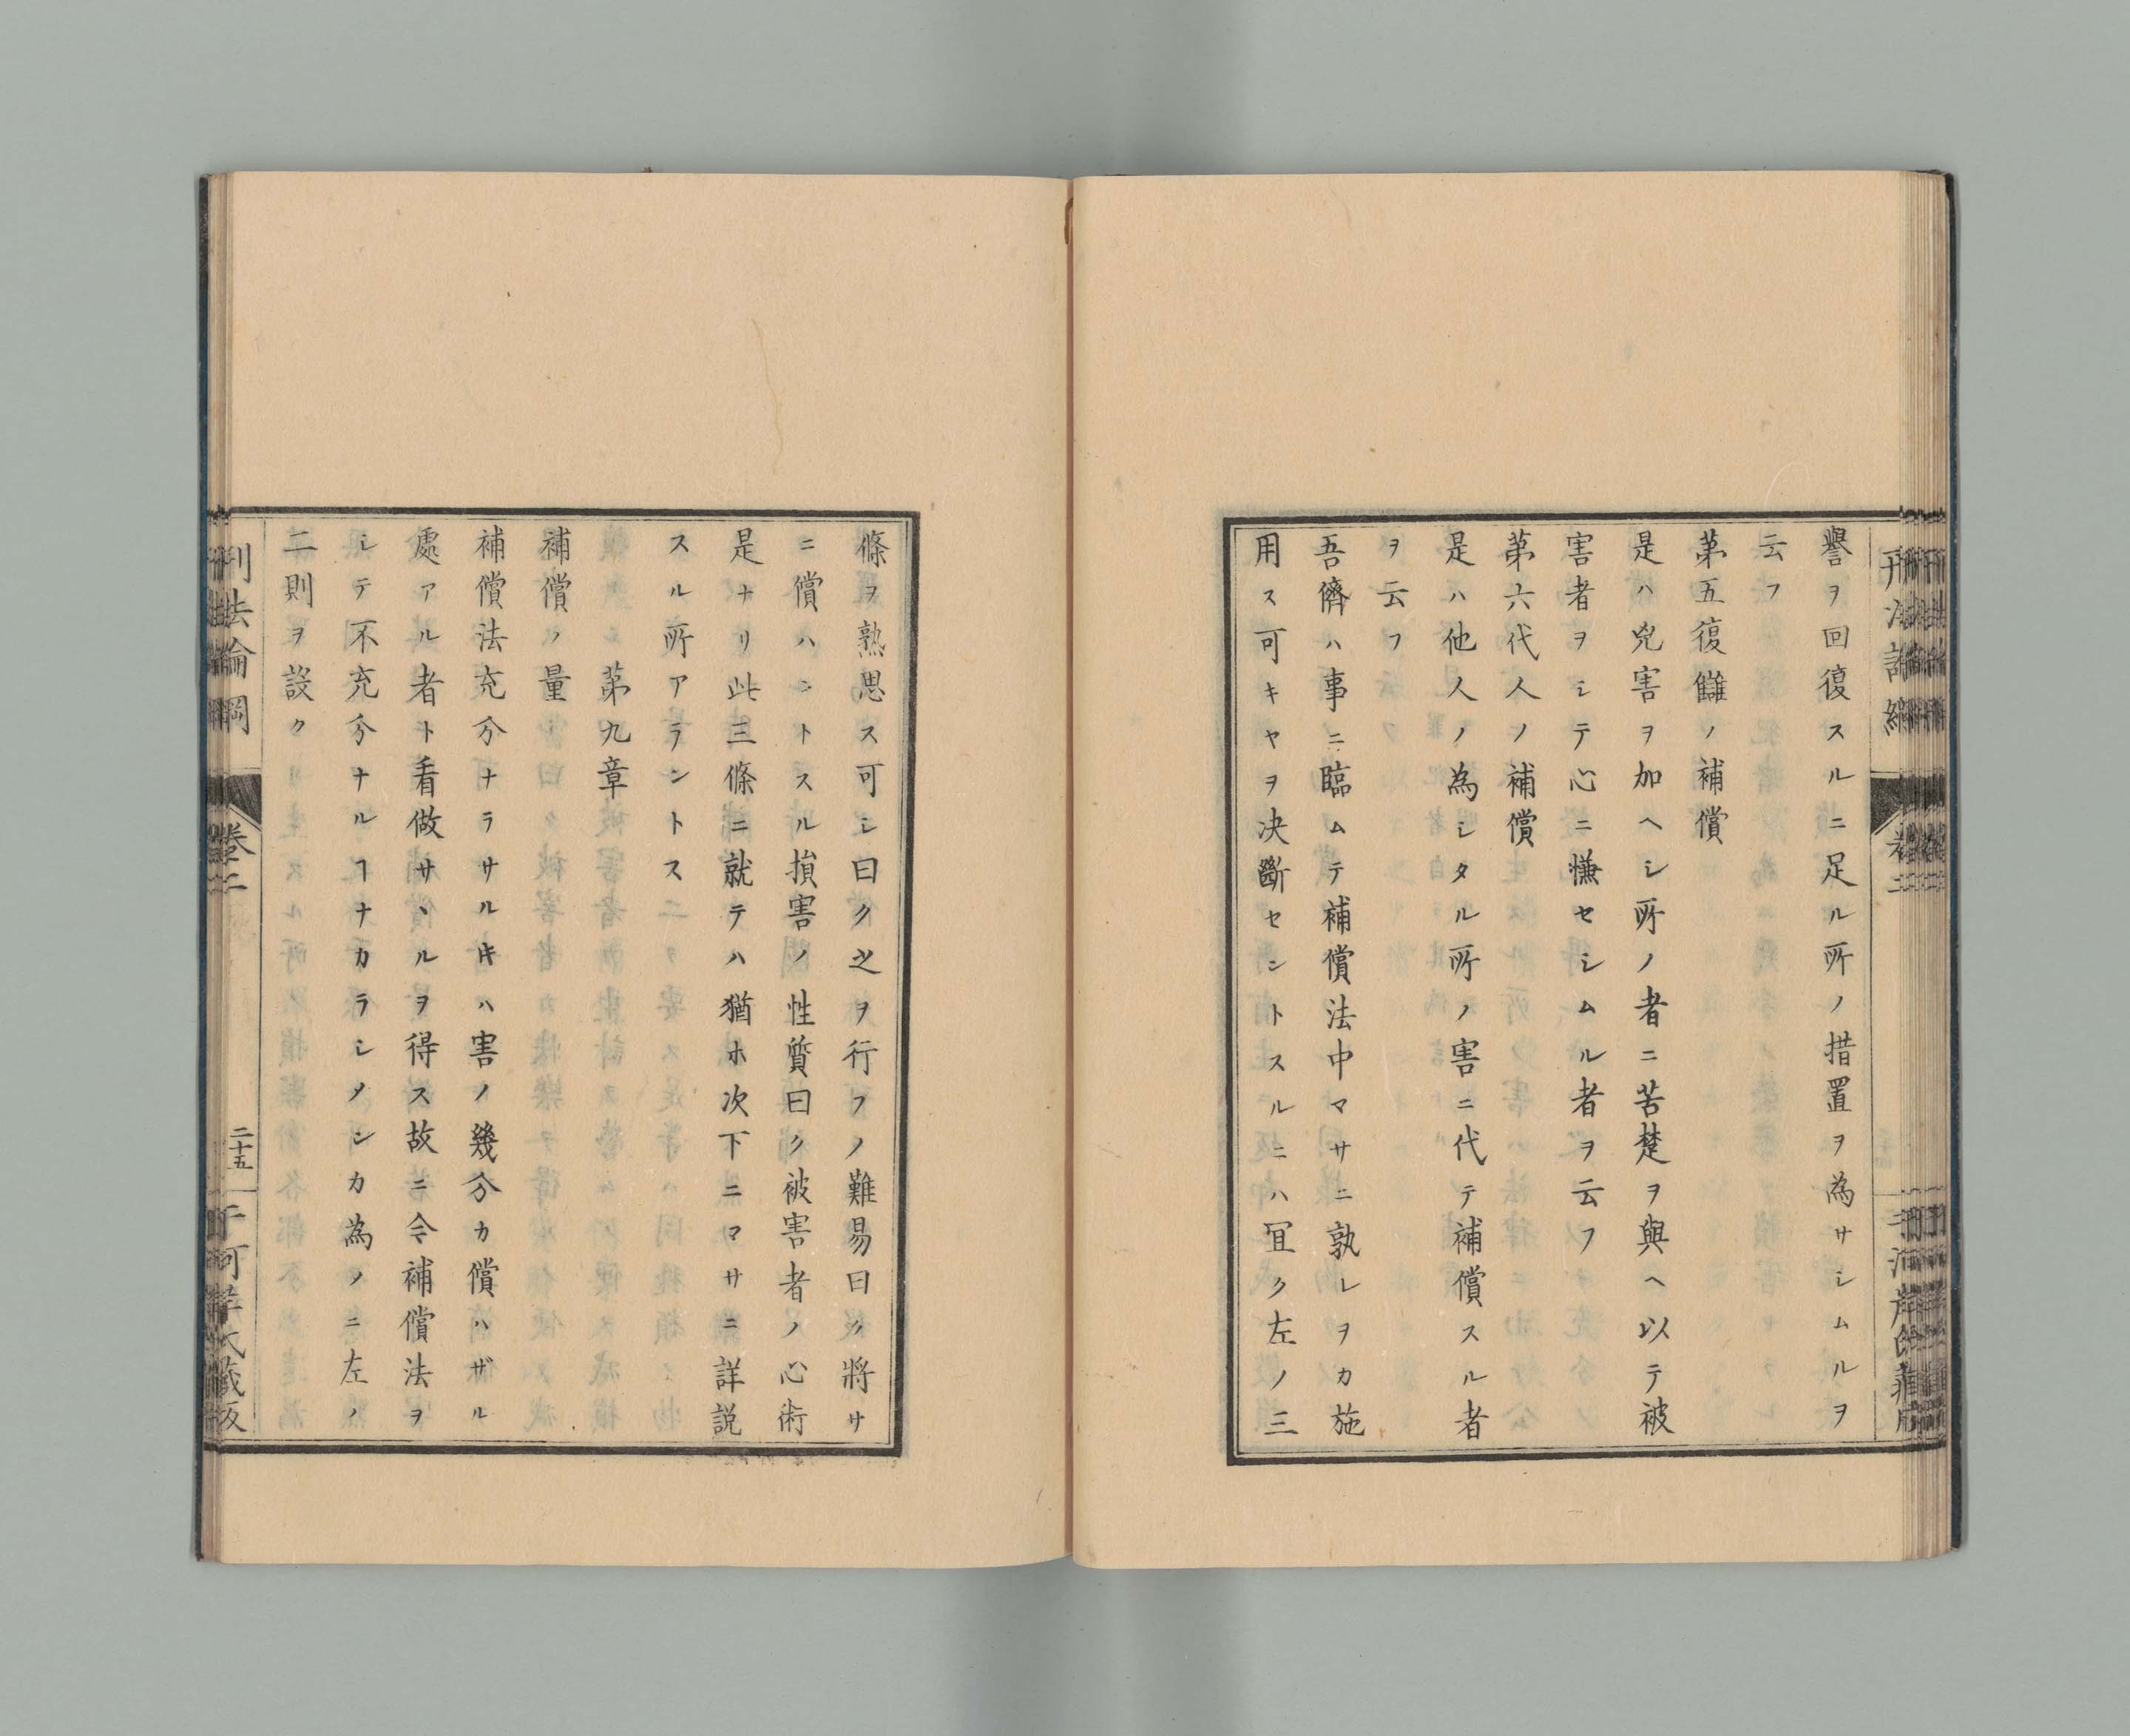 譽ヲ回復スルニ足ル所ノ措置ヲ為サシムルヲ
云フ
第五復讎ノ補償
是ハ兇害ヲ加ヘシ所ノ者ニ苦楚ヲ與ヘ以テ被
害者ヲシテ心ニ慊セシムル者ヲ云フ
第六代人ノ補償
是ハ他人ノ為シタル所ノ害ニ代テ補償スル者
ヲ云フ
吾儕ハ事ニ臨ムテ補償法中マサニ孰レヲカ施
用ス可キヤヲ决斷セントスルニハ冝ク左ノ三
條ヲ熟思ス可シ曰ク之ヲ行フノ難易曰ク將サ
ニ償ハントスル損害ノ性質曰ク被害者ノ心術
是ナリ此三條ニ就テハ猶ホ次下ニマサニ詳説
スル所アラントス
第九章
補償ノ量
補償法充分ナラサルキハ害ノ幾分カ償ハザル
處アル者ト看做サヽルヲ得ス故ニ令補償法ヲ
シテ不充分ナルヿナカラシメンカ為メニ左ノ
二則ヲ設ク
刑法論綱
卷二
二十五